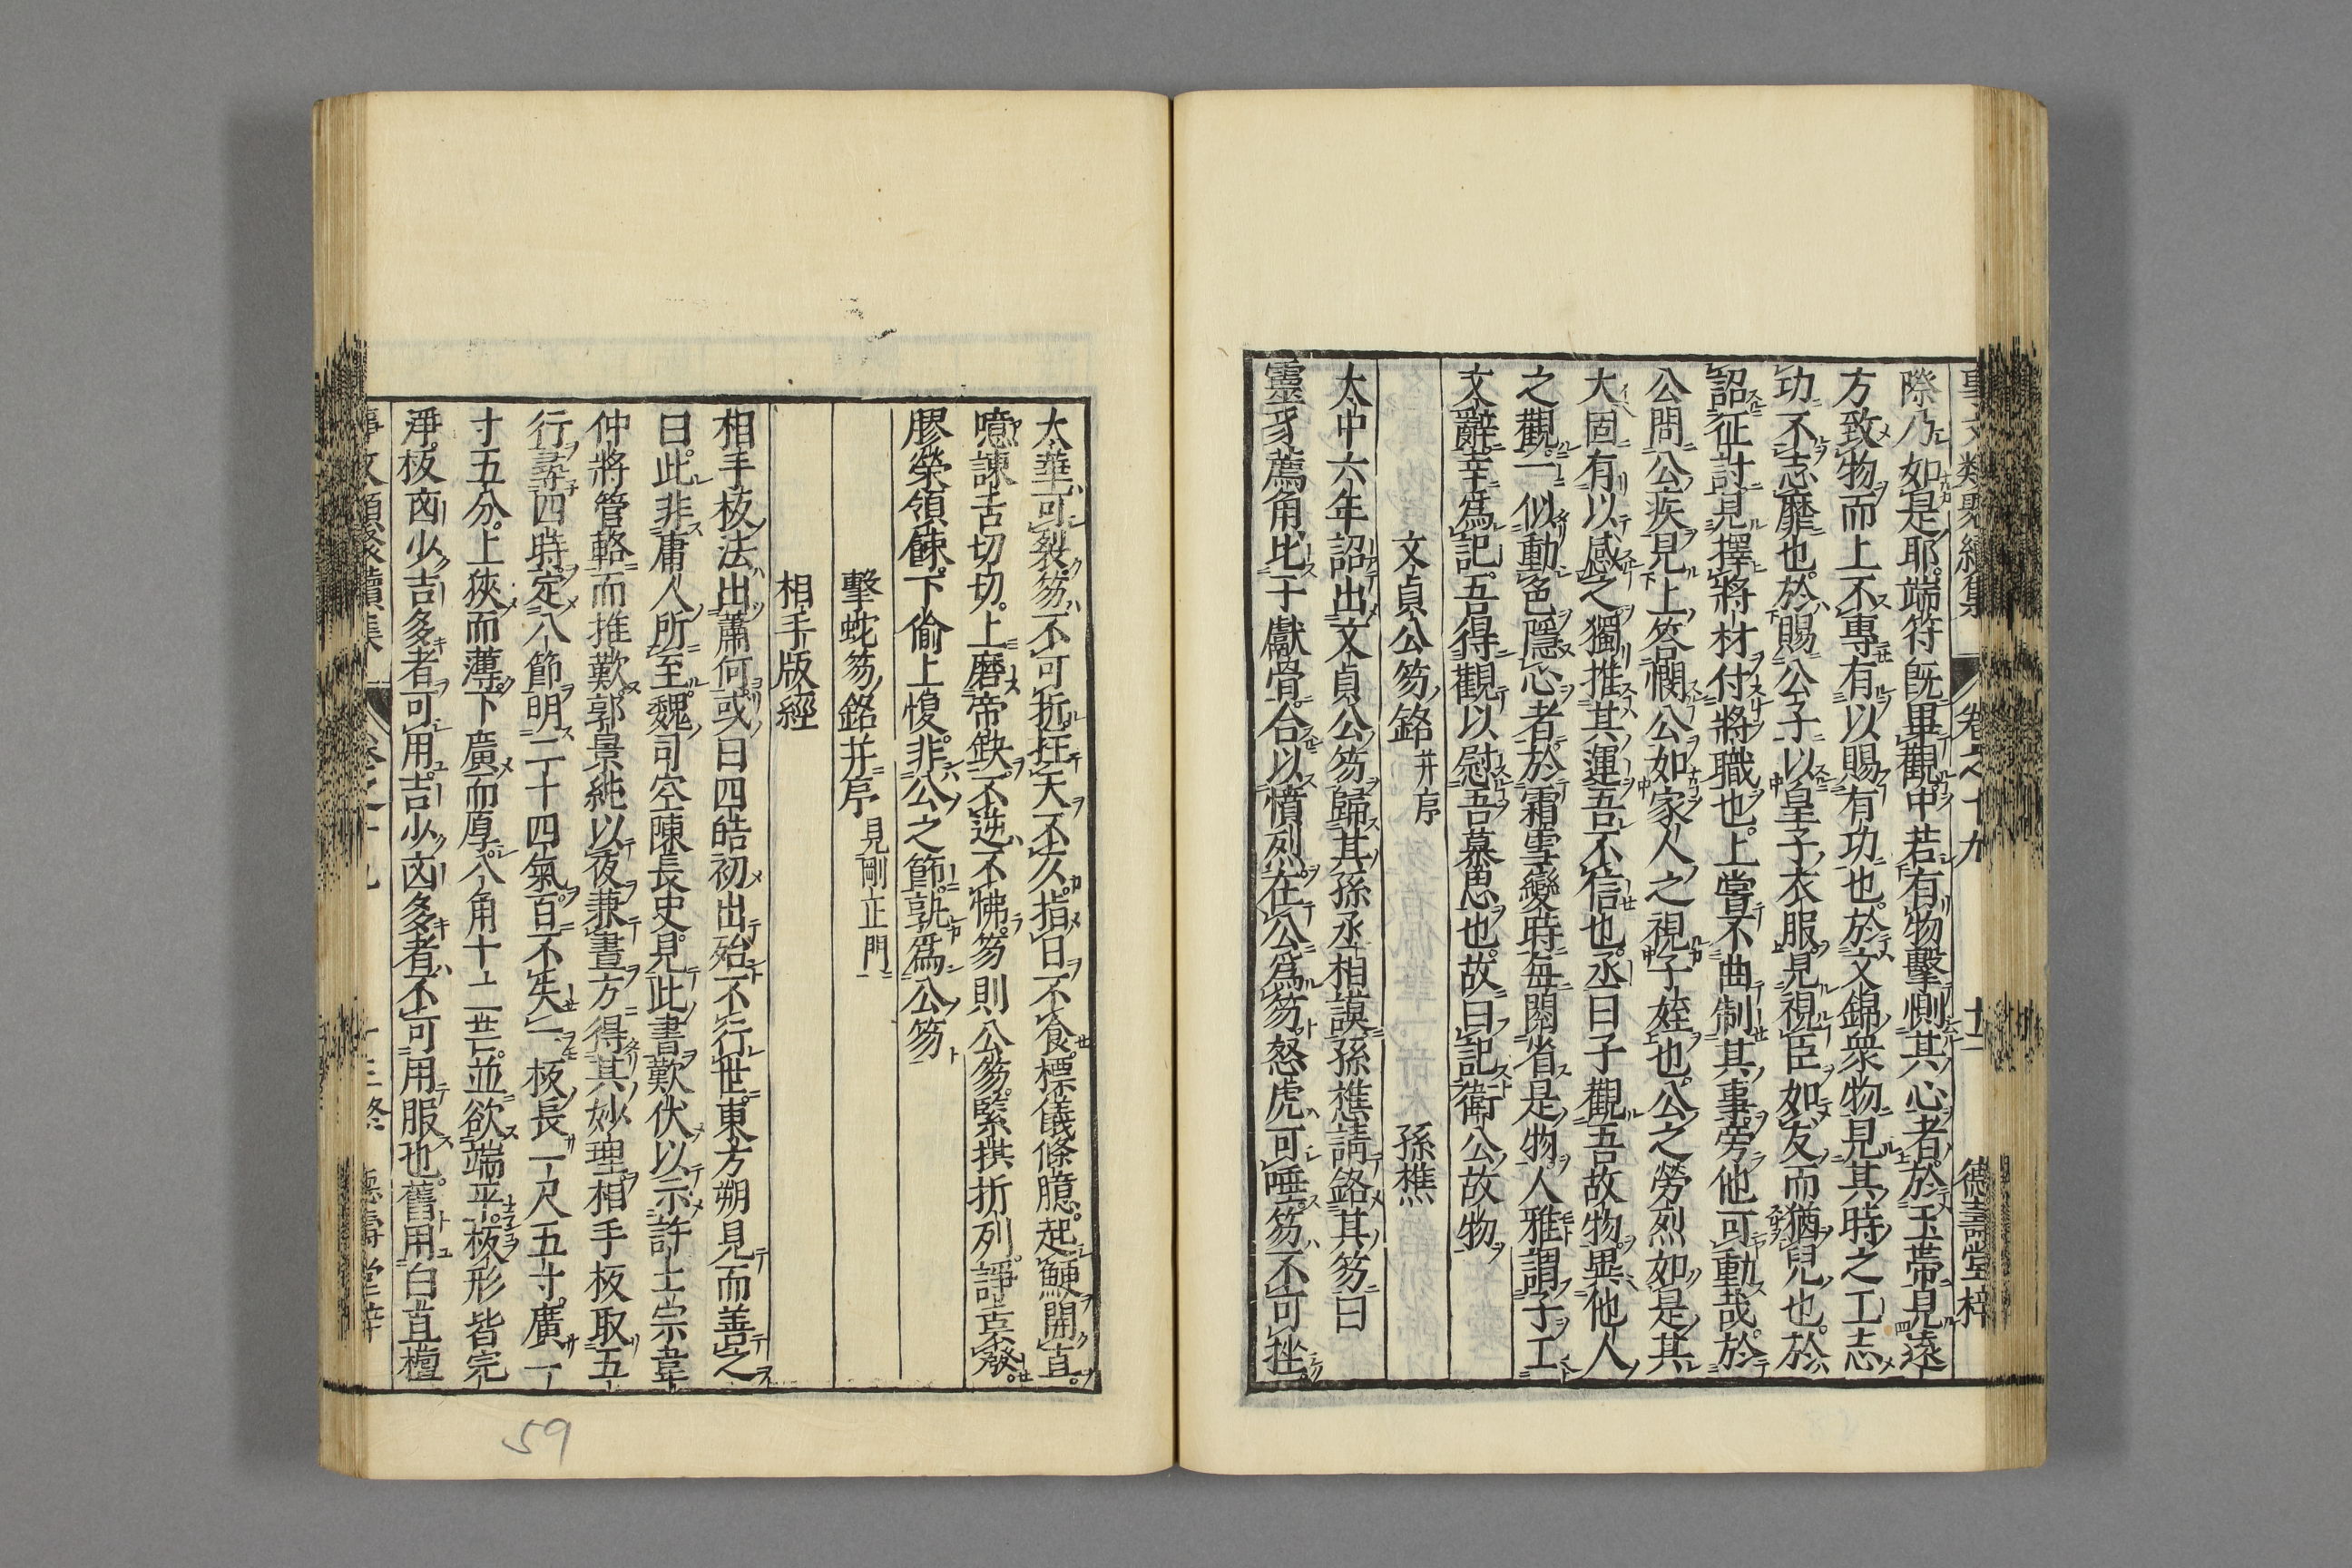 事文類聚續集 卷之十九 十三 德壽堂梓
際乃如是耶端符既畢觀中若有物擊惻其心者於玉帶見遠
方致物而上不專有以賜有功也於文錦衆物見其時之工志
功不志靡也於賜公子以皇子衣服見視臣如友而猶兒也於
詔征討見擇將材付將職也上嘗不曲制其事旁他可動哉於
公問公疾見上答憫公如家人之視子姪也公之勞烈如是其
大固有以感之獨推其運吾不信也丞曰子觀吾故物異他人
之觀一似動色隱心者於霜雪變時每閱省是物人雅謂子工
文辭幸爲記吾得觀以慰吾慕思也故曰記衛公故物
文貞公笏銘 并序 孫樵
大中六年詔出文貞公笏歸其孫丞相謨孫樵請銘其笏曰
靈豸薦角比干獻骨合以憤烈在公爲笏怒虎可唾笏不可挫
太華可裂笏不可折抂天不久指日不食標儀條臆起鯁開直
噫諫舌切切上磨帝缺不逆不怫笏則公笏緊拱折列諍言不發
膠榮領餗下偷上愎非公之節孰爲公笏
擊蛇笏銘并序 見剛正門
相手版經
相手板法出蕭何或曰四皓初出殆不行世東方朔見而善之
曰此非庸人所至魏司空陳長史見此書歎伏以示許士宗韋
仲將管輅而推歎郭景純以夜兼晝方得其妙理相手板取五
行尋四時定八節明二十四氣百不失一板長一尺五寸廣一
寸五分上狹而薄下廣而厚八角十二芒並欲端平板形皆完
淨板凶少吉多者可用吉少凶多者不可用服也舊用白直檀
事文類聚續集 卷之十九 十三終 德壽堂梓
59